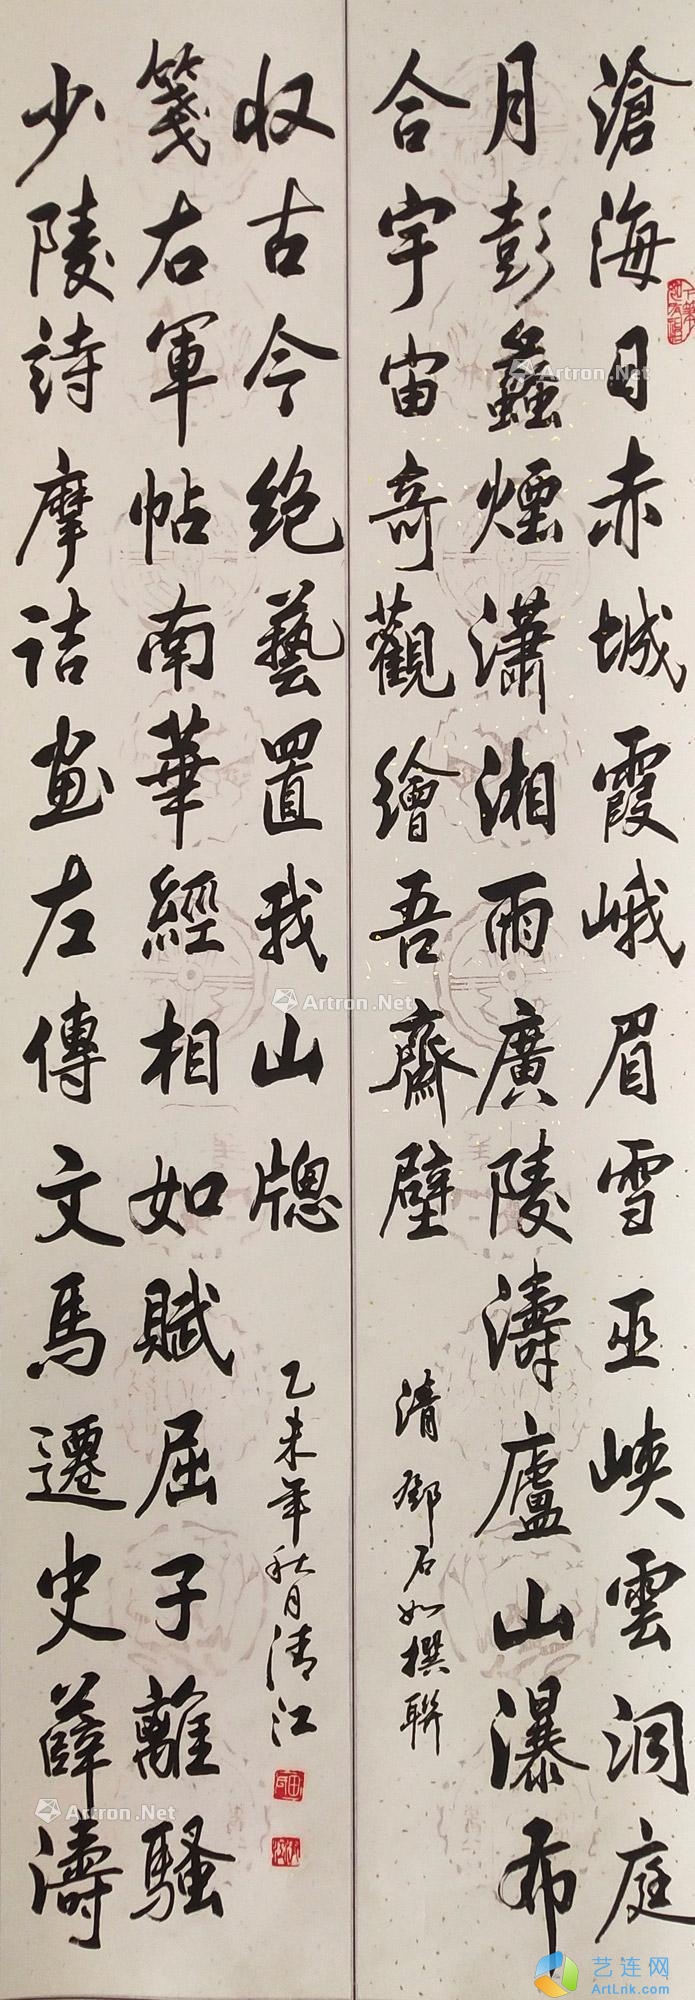 滄海日赤城霞峨眉雪巫峽雲洞庭
月彭蠡煙瀟湘雨廣陵濤廬山瀑布
合宇宙奇觀繪吾齋壁
清鄧石如撰聯
少陵詩摩诘画左傳文馬遷史薛濤
箋右軍帖南華經相如賦屈子離騷
收古今绝藝置我山牕
乙未年秋月清江
Artron.Net
Artron.Net
Artron.Net
艺连网
ArtLnk.com